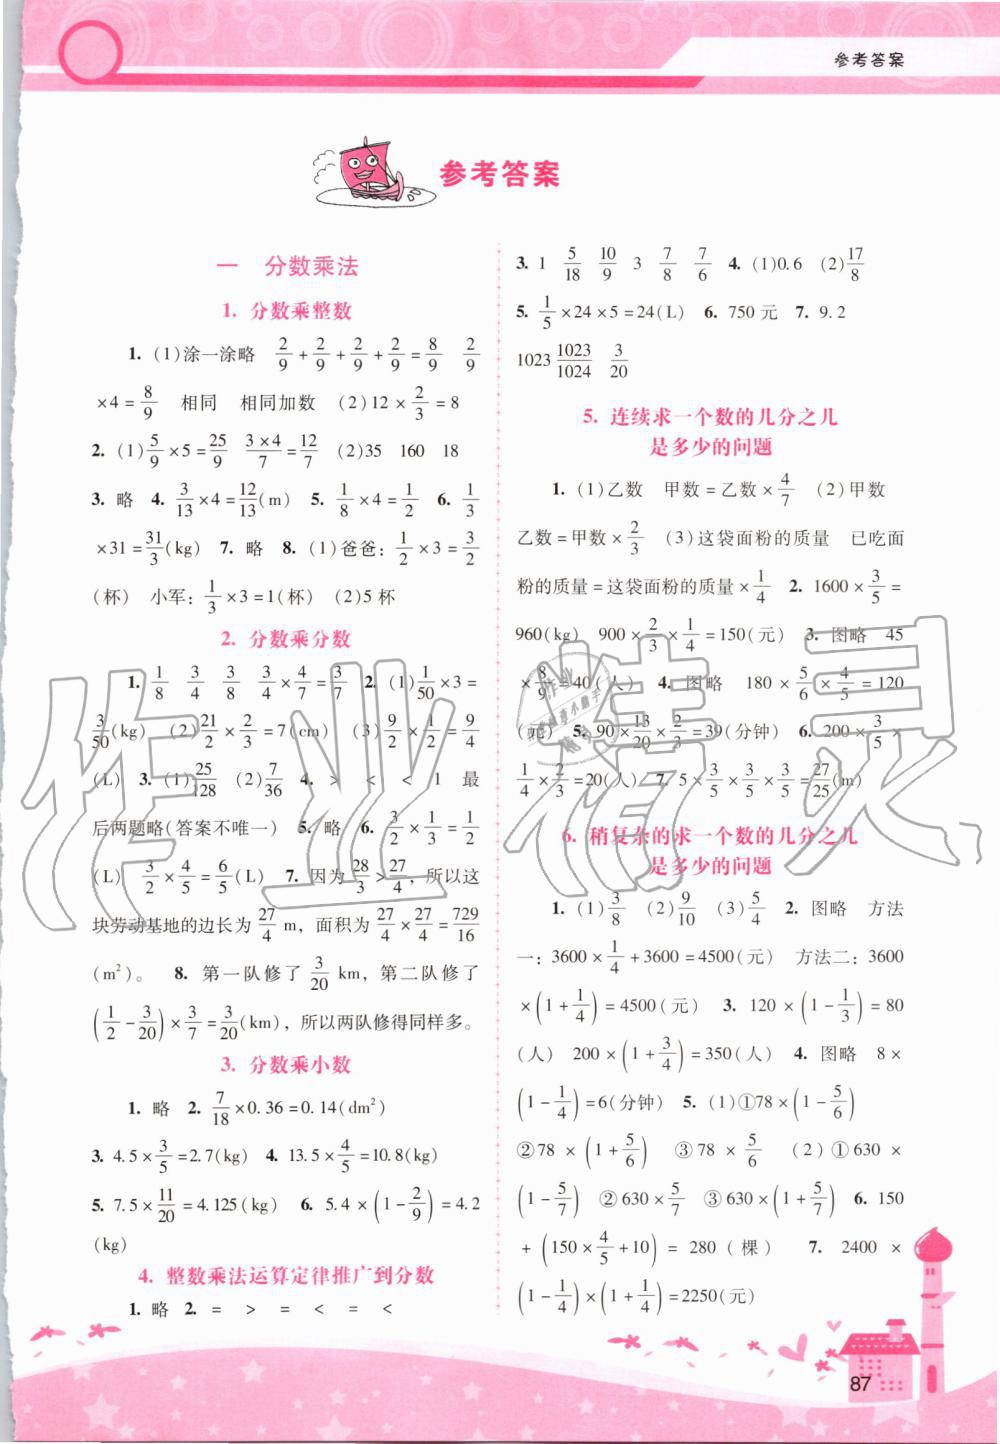 参考答案
参考答案
一 分数乘法
1. 分数乘整数
1. (1)涂一涂略 2/9+2/9+2/9+2/9=8/9 2/9
×4=8/9 相同 相同加数 (2)12×2/3=8
2. (1)5/9×5=25/9 3×4/7=12/7 (2)35 160 18
3. 略 4. 3/13×4=12/13(m) 5. 1/8×4=1/2 6. 1/3
×31=31/3(kg) 7. 略 8. (1)爸爸:1/2×3=3/2
(杯) 小军:1/3×3=1(杯) (2)5杯
2. 分数乘分数
1. 1/8 3/4 3/8 3/4×4/7=3/7 2. (1)1/50×3=
3/50(kg) (2)21/2×2/3=7(cm) (3)9/2×1/2=9/4
(L) 3. (1)25/128 (2)7/36 4. > < < 1 最
后两题略(答案不唯一) 5. 略 6. 3/2×1/3=1/2
(L) 3/2×4/5=6/5(L) 7. 因为28/3>27/4,所以这
块劳动基地的边长为27/4 m,面积为27/4×27/4=729/16
(m²)。 8. 第一队修了3/20 km,第二队修了
(1/2-3/20)×3/7=3/20(km),所以两队修得同样多。
3. 分数乘小数
1. 略 2. 7/18×0.36=0.14(dm²)
3. 4.5×3/5=2.7(kg) 4. 13.5×4/5=10.8(kg)
5. 7.5×11/20=4.125(kg) 6. 5.4×(1-2/9)=4.2
(kg)
4. 整数乘法运算定律推广到分数
1. 略 2. = > = < = <
3. 1 5/18 10/9 3 7/8 7/6 4. (1)0.6 (2)17/8
5. 1/5×24×5=24(L) 6. 750元 7. 9.2
1023 1023/1024 3/20
5. 连续求一个数的几分之几
是多少的问题
1. (1)乙数 甲数=乙数×4/7 (2)甲数
乙数=甲数×2/3 (3)这袋面粉的质量 已吃面
粉的质量=这袋面粉的质量×1/4 2. 1600×3/5=
960(kg) 900×2/3×1/4=150(元) 3. 图略 45
×8/9=40(人) 4. 图略 180×5/6×4/5=120
(元) 5. 90×13/20×2/3=39(分钟) 6. 200×3/5×
1/4×2/3=20(人) 7. 5×3/5×3/5×3/5=27/25(m)
6. 稍复杂的求一个数的几分之几
是多少的问题
1. (1)3/8 (2)9/10 (3)5/4 2. 图略 方法
一:3600×1/4+3600=4500(元) 方法二:3600
×(1+1/4)=4500(元) 3. 120×(1-1/3)=80
(人) 200×(1+3/4)=350(人) 4. 图略 8×
(1-1/4)=6(分钟) 5. (1)①78×(1-5/6)
②78×(1+5/6) ③78×5/6 (2)①630×
(1-5/7) ②630×5/7 ③630×(1+5/7) 6. 150
+(150×4/5+10)=280(棵) 7. 2400×
(1-1/4)×(1+1/4)=2250(元)
87
作业精灵